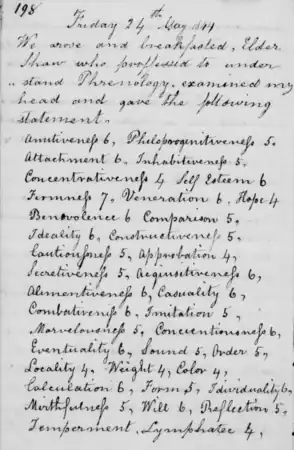 198
Friday 24th May 1844
We arose and breakfasted, Elder
Shaw who proffessed to under
stand Phrenology, examined my
head and gave the following
statement.
Amitiveness 6, Philoprogenitiveness 5,
Attachment 6, Inhabitiveness 5,
Concentrativeness 4 Self Esteem 6
Firmness 7, Veneration 6, Hope 4
Benovolence 6 Comparison 5,
Ideality 6, Constructiveness 5,
Cautiousness 5, Approbation 4,
Secretiveness 5, Acquisitiveness 6,
Alimentiveness 6, Casuality 6,
Combativeness 6, Imitation 5,
Marvelousness 5, Concentiousness 6,
Eventuality 6, Sound 5, Order 5,
Locality 4, Weight 4, Color 4,
Calculation 6, Form 5, Idividuality 6,
Mirthfulness 5, Wilt 6, Reflection 5,
Temperment, Lymphatec 4,